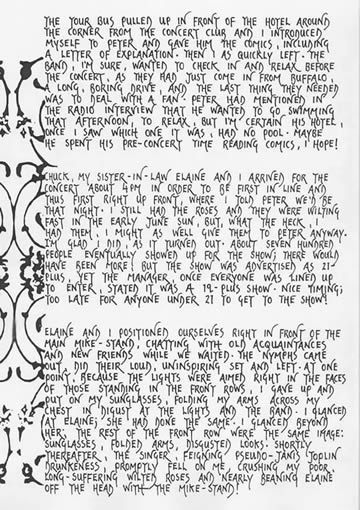 THE YOUR BUS PULLED UP IN FRONT OF THE HOTEL AROUND
THE CORNER FROM THE CONCERT CLUB AND I INTRODUCED
MYSELF TO PETER AND GAVE HIM THE COMICS, INCLUDING
A LETTER OF EXPLANATION. THEN I AS QUICKLY LEFT. THE
BAND, I'M SURE, WANTED TO CHECK IN AND RELAX BEFORE
THE CONCERT, AS THEY HAD JUST COME IN FROM BUFFALO,
A LONG, BORING DRIVE, AND THE LAST THING THEY NEEDED
WAS TO DEAL WITH A FAN. PETER HAD MENTIONED IN
THE RADIO INTERVIEW THAT HE WANTED TO GO SWIMMING
THAT AFTERNOON, TO RELAX, BUT I'M CERTAIN HIS HOTEL,
ONCE I SAW WHICH ONE IT WAS, HAD NO POOL. MAYBE
HE SPENT HIS PRE-CONCERT TIME READING COMICS, I HOPE!
CHUCK, MY SISTER-IN-LAW ELAINE AND I ARRIVED FOR THE
CONCERT ABOUT 4PM IN ORDER TO BE FIRST IN LINE AND
THUS FIRST RIGHT UP FRONT, WHERE I TOLD PETER WE'D BE
THAT NIGHT. I STILL HAD THE ROSES AND THEY WERE WILTING
FAST IN THE EARLY JUNE SUN, BUT, WHAT THE HECK, I
HAD THEM, I MIGHT AS WELL GIVE THEM TO PETER ANYWAY.
I'M GLAD I DID, AS IT TURNED OUT. ABOUT SEVEN HUNDRED
PEOPLE EVENTUALLY SHOWED UP FOR THE SHOW; THERE WOULD
HAVE BEEN MORE, BUT THE SHOW WAS ADVERTISED AS 21-
PLUS, YET THE MANAGER, ONCE EVERYONE WAS LINED UP
TO ENTER, STATED IT WAS A 19-PLUS SHOW. NICE TIMING;
TOO LATE FOR ANYONE UNDER 21 TO GET TO THE SHOW!
ELAINE AND I POSITIONED OURSELVES RIGHT IN FRONT OF THE
MAIN MIKE-STAND, CHATTING WITH OLD ACQUAINTANCES
AND NEW FRIENDS WHILE WE WAITED. THE NYMPHS CAME
OUT, DID THEIR LOUD, UNINSPIRING SET AND LEFT. AT ONE
POINT, BECAUSE THE LIGHTS WERE AIMED RIGHT IN THE FACES
OF THOSE STANDING IN THE FRONT ROWS, I GAVE UP AND
PUT ON MY SUNGLASSES, FOLDING MY ARMS ACROSS MY
CHEST IN DIGUST AT THE LIGHTS AND THE BAND. I GLANCED
AT ELAINE; SHE HAD DONE THE SAME. I GLANCED BEYOND
HER: THE REST OF THE FRONT ROW WERE THE SAME IMAGE:
SUNGLASSES, FOLDED ARMS, DISGUSTED LOOKS. SHORTLY
THEREAFTER, THE SINGER, FEIGNING PSEUDO-JANIS JOPLIN
DRUNKENESS, PROMPTLY FELL ON ME, CRUSHING MY POOR,
LONG-SUFFERING WILTED ROSES AND NEARLY BEANING ELAINE
OFF THE HEAD WITH THE MIKE-STAND!